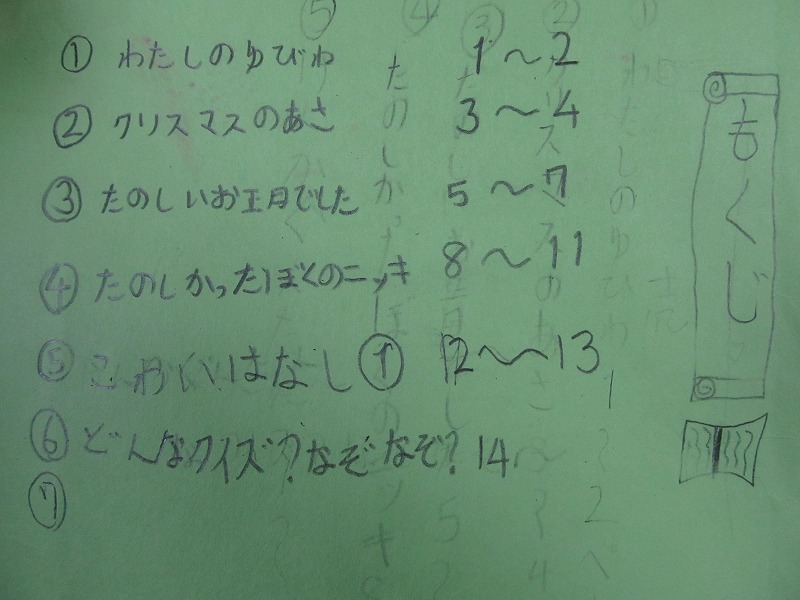 もくじ
① わたしのゆびわ 1〜2
② クリスマスのあさ 3〜4
③ たのしいお正月でした 5〜7
④ たのしかったぼくのニッキ 8〜11
⑤ こわいはなし① 12〜13
⑥ どんなクイズ?なぞなぞ? 14〜
⑦